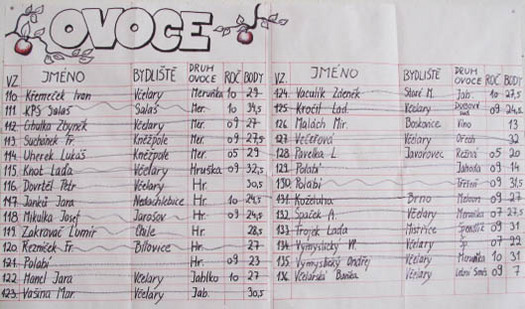 OVOCE
VZ. JMÉNO BYDLIŠTĚ DRUH OVOCE ROČ BODY
110 Křemeček Ivan Včelary Meruňka 10 29
111 KPS Salaš Salaš Mer. 10 31,5
112 Cibulka Zbyněk Včelary Mer. 09 27
113 Suchánek Fr. Kněžpole Mer. 09 27,5
114 Uherek Lukáš Kněžpole Mer. 05 29
115 Knot Lada Včelary Hruška 09 32,5
116 Dovrtěl Petr Včelary Hr. 30,5
117 Janků Jara Nedachlebice Hr. 10 24,5
118 Mikulka Josef Jarošov Hr. 09 24,5
119 Zakravač Lumír Chile Hr. 28,5
120 Řezníček Fr. Bílovice Hr. 27
121 Polabí Hr. 09 23
122 Hancl Jara Včelary Jablko 10 27
123 Vašina Mar. Včelary Jab. 30,5
VZ. JMÉNO BYDLIŠTĚ DRUH OVOCE ROČ BODY
124 Vaculík Zdeněk Staré M. Jab. 10 27,5
125 Kročil Lad. Včelary 09 24,5
126 Malách Mir. Boskovice Víno 13
127 Večeřová Včelary Ořech 32
128 Pavelka L. Javorovec Režná 05 20
129 Polabí Jahoda 09 14
130 Polabí Třešně 31,5
131 Koželuha Brno Meloun 09 27
132 Špaček A. Včelary Meruňka 07 27,5
133 Trojek Lada Mistřice 09 31
134 Vymyslický Vl. Včelary 07 22
135 Vymyslický Ondřej Včelary Meruňka 10 31
136 Včelařská Baňka Včelary Letní Směs 09 7